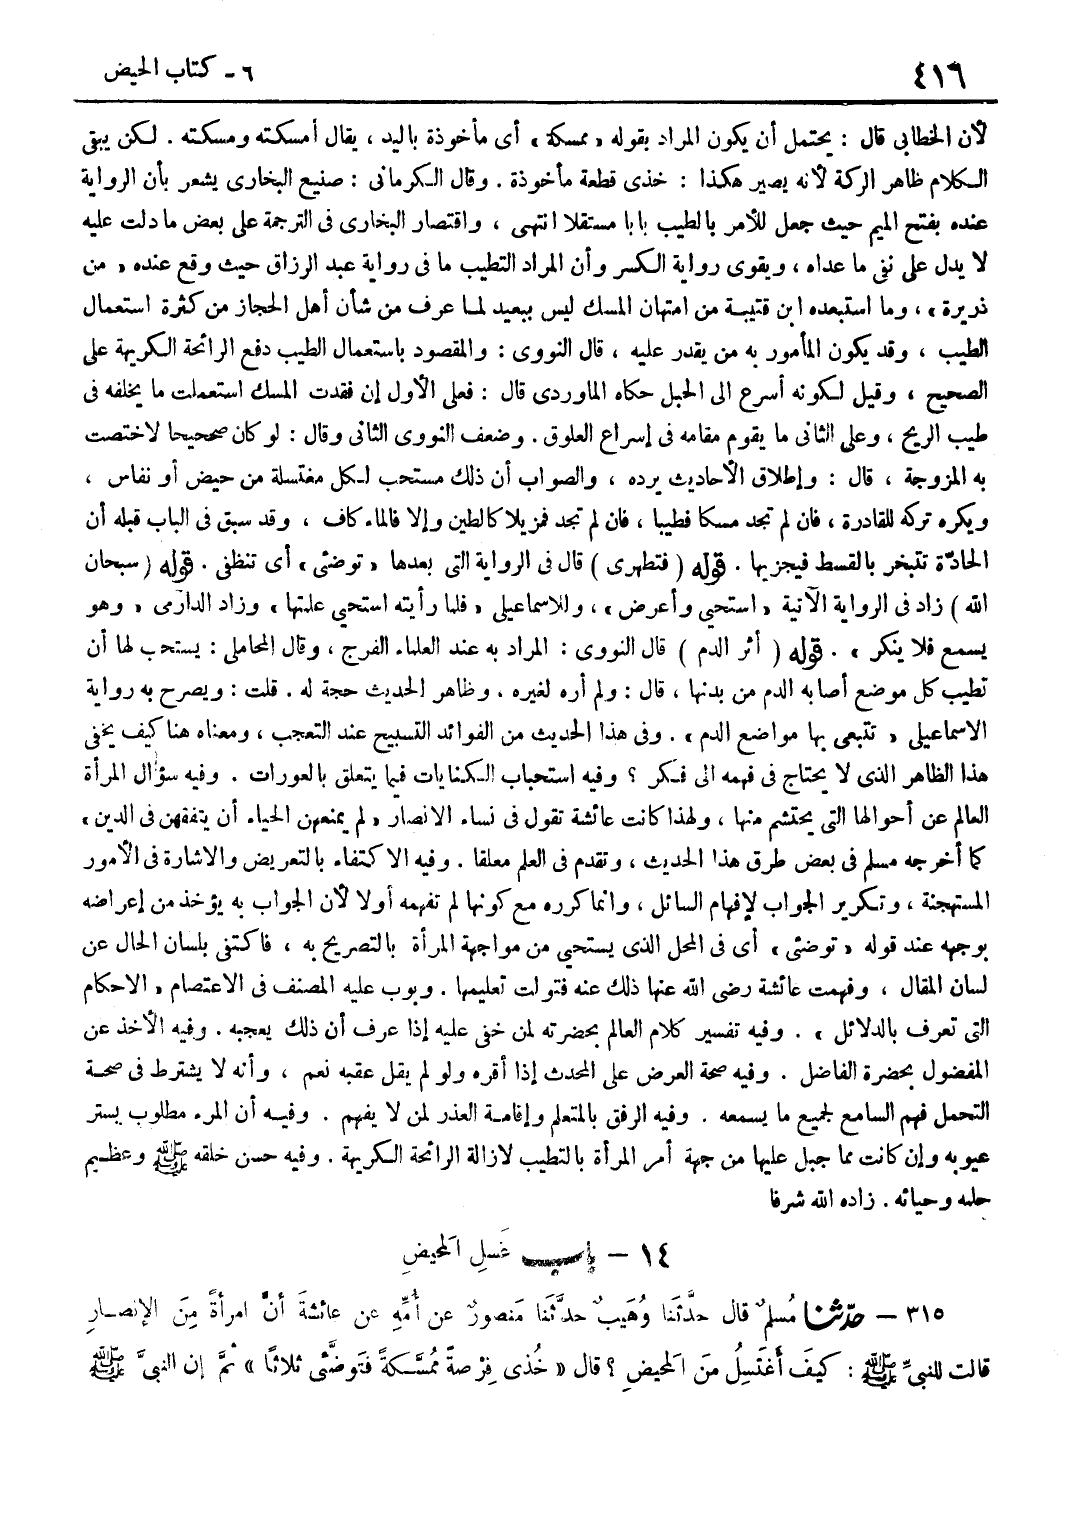 ٤١٦
٦ - كتاب الحيض
لأن الخطابى قال : يحتمل أن يكون المراد بقوله « ممسكة » أى مأخوذة باليد ، يقال أمسكته ومسكته . لكن يبقى
الكلام ظاهر الركة لأنه يصير هكذا : خذى قطعة مأخوذة . وقال الكرمانى : صنيع البخارى يشعر بأن الرواية
عنده بفتح الميم حيث جعل للأمر بالطيب بابا مستقلا انتهى ، واقتصار البخارى فى الترجمة على بعض ما دلت عليه
لا يدل على نفى ما عداه ، ويقوى رواية الكسر وأن المراد التطيب ما فى رواية عبد الرزاق حيث وقع عنده « من
ذريرة » ، وما استبعده ابن قتيبة من امتهان المسك ليس ببعيد لما عرف من شأن أهل الحجاز من كثرة استعمال
الطيب ، وقد يكون المأمور به من يقدر عليه ، قال النووى : والمقصود باستعمال الطيب دفع الرائحة الكريهة على
الصحيح ، وقيل لكونه أسرع الى الحبل حكاه الماوردى قال : فعلى الأول إن فقدت المسك استعملت ما يخلفه فى
طيب الريح ، وعلى الثانى ما يقوم مقامه فى إسراع العلوق . وضعف النووى الثانى وقال : لو كان صحيحا لاختصت
به المزوجة ، قال : وإطلاق الأحاديث يرده ، والصواب أن ذلك مستحب لكل مغتسلة من حيض أو نفاس ،
ويكره تركه للقادرة ، فان لم تجد مسكا فطيبا ، فان لم تجد فمزيلا كالطين وإلا فالماء كاف ، وقد سبق فى الباب قبله أن
الحادّة تتبخر بالقسط فيجزيها . قوله ( فتطهرى ) قال فى الرواية التى بعدها « توضئى » أى تنظفى . قوله ( سبحان
الله ) زاد فى الرواية الآتية « استحيى وأعرض » ، وللاسماعيلى « فلما رأيته استحيى علمتها » وزاد الدارمى « وهو
يسمع فلا ينكر » . قوله ( أثر الدم ) قال النووى : المراد به عند العلماء الفرج ، وقال المحاملى : يستحب لها أن
تطيب كل موضع أصابه الدم من بدنها ، قال : ولم أره لغيره ، وظاهر الحديث حجة له . قلت : ويصرح به رواية
الاسماعيلى « تتبعى بها مواضع الدم » . وفى هذا الحديث من الفوائد التسبيح عند التعجب ، ومعناه هنا كيف يخفى
هذا الظاهر الذى لا يحتاج فى فهمه الى فكر ؟ وفيه استحباب الكنايات فيما يتعلق بالعورات . وفيه سؤال المرأة
العالم عن أحوالها التى يحتشم منها ، ولهذا كانت عائشة تقول فى نساء الانصار « لم يمنعهن الحياء أن يتفقهن فى الدين »
كما أخرجه مسلم فى بعض طرق هذا الحديث ، وتقدم فى العلم معلقا . وفيه الاكتفاء بالتعريض والاشارة فى الأمور
المستهجنة ، وتكرير الجواب لإفهام السائل ، وانما كرره مع كونها لم تفهمه أولا لأن الجواب به يؤخذ من إعراضه
بوجهه عند قوله « توضئى » أى فى المحل الذى يستحيى من مواجهة المرأة بالتصريح به ، فاكتفى بلسان الحال عن
لسان المقال ، وفهمت عائشة رضى الله عنها ذلك عنه فتولت تعليمها . وبوب عليه المصنف فى الاعتصام « الاحكام
التى تعرف بالدلائل » . وفيه تفسير كلام العالم بحضرته لمن خفى عليه إذا عرف أن ذلك يعجبه . وفيه الأخذ عن
المفضول بحضرة الفاضل . وفيه صحة العرض على المحدث إذا أقره ولو لم يقل عقبه نعم ، وأنه لا يشترط فى صحة
التحمل فهم السامع لجميع ما يسمعه . وفيه الرفق بالمتعلم وإقامة العذر لمن لا يفهم . وفيه أن المرء مطلوب بستر
عيوبه وإن كانت مما جبل عليها من جهة أمر المرأة بالتطيب لازالة الرائحة الكريهة . وفيه حسن خلقه ﷺ وعظيم
حلمه وحيائه . زاده الله شرفا
١٤ - باب غَسلِ المَحيضِ
٣١٥ - حدّثنا مُسلمٌ قال حدَّثَنا وُهَيبٌ حدَّثَنا مَنصورٌ عن أُمِّهِ عن عائشةَ أنَّ امرأةً مِنَ الإنصارِ
قالت للنبىِّ ﷺ : كيفَ أَغتَسِلُ منَ المَحيضِ ؟ قال « خُذى فِرْصةً مُمَسَّكةً فَتوَضَّئى ثلاثًا » ثمَّ إن النبىَّ ﷺ